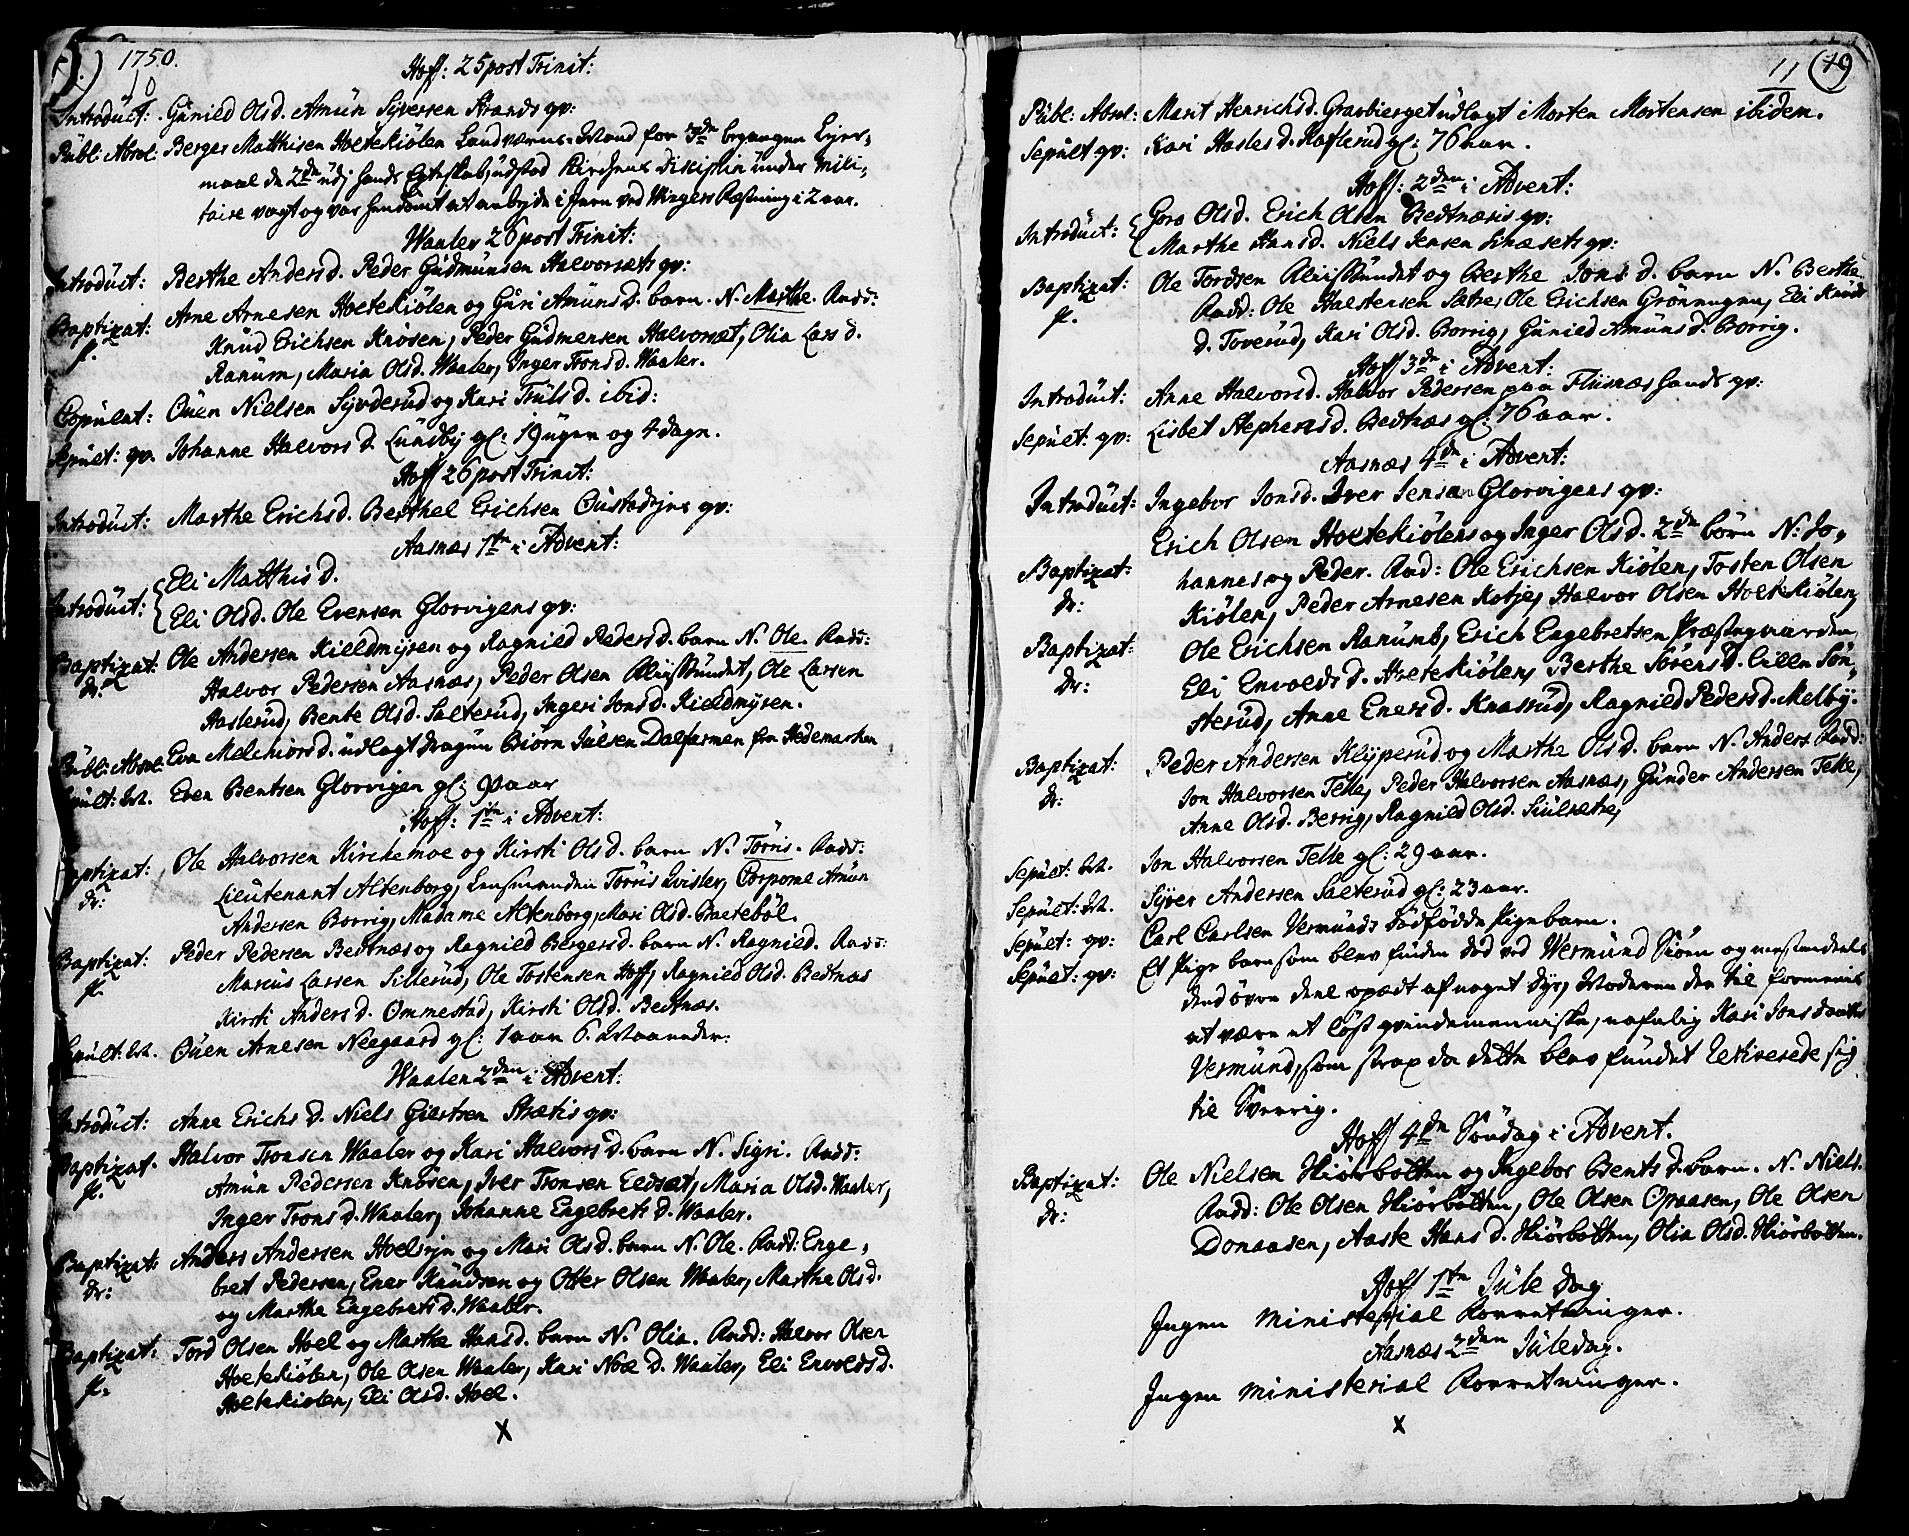 1750.
10
Hoff: 25 post Trinit:
Introduct: Gunild Olsd. Amun Syversen Strands qv:
Publ: Absol. Berger Matthisen Hoetekiölen Landværns-Mand for 3de begangen Lejer-
maal de 2de udj hands Egteskab, udstod Kirckens Disciplin under mili-
taire vagt og var hendömt at arbejde i Jern ved Wingers Fæstning i 2 aar.
Waaler 26 post Trinit:
Introduct: Berthe Andersd. Peder Gudmunsen Halvorsæts qv:
Baptizat: Arne Arnesen Hoetekiölen og Guri Amunsd. barn. N. Marthe. Fadd:
f. Knud Erichsen Knosen, Peder Gudmensen Halvorsæt, Olia Lars d.
Ranum, Maria Olsd. Waaler, Inger Tronsd. Waaler.
Copulat: Ouen Nielsen Syvderud og Kari Trulsd. ibid:
Sepult: qv. Johanne Halvors d. Lundby gl: 19 uger og 4 dage.
Hoff 26 post Trinit:
Introduct: Marthe Erichsd. Berthel Erichsen Oustadejes qv:
Aasnæs 1te i Advent:
Eli Matthisd.
Introduct: Eli Olsd. Ole Evensen Glorvigens qv:
Baptizat: Ole Andersen Kieldmyren og Ragnild Pedersd. barn N. Ole. Fadd:
dr: Halvor Pedersen Aasnæs, Peder Olsen Aliisstundet, Ole Larsen
Haslerud, Bente Olsd. Salterud, Ingeri Jonsd. Kieldmyren.
Publ: Absol: Eva Melchiorsd. udlagt dragun Biörn Julsen Dalfarmen fra Hedemarken
Sepult: M. Even Bentsen Glorvigen gl: 90 aar
Hoff: 1te i Advent:
Baptizat: Ole Halvorsen Kirckemoe og Kirsti Olsd. barn N. Törris. Fadd:
dr: Lieutenant Altenborg, Lensmanden Törris Qvisler, Corporal Amun
Andersen Borrig, Madame Altenborg, Mari Olsd. Braatebøl.
Baptizat: Peder Pedersen Bedtnæs og Ragnild Bergersd. barn N. Ragnild. Fadd:
f. Marius Larsen Sillerud, Ole Tostensen Hoff, Ragnild Olsd. Bedtnæs
Kirsti Anders d. Ommestad, Kirsti Olsd. Bedtnæs.
Sepult: M. Ouen Arnesen Neegaard gl: 1 aar 6. Maaneder.
Waaler 2den i Advent:
Introduct: Anne Erichs d. Niels Giertsen Strætis qv:
Baptizat. Halvor Tronsen Waaler og Kari Halvors d. barn N. Sigri. Fadd:
f. Amun Pedersen Knösen, Iver Tronsen Eedsæt, Maria Olsd. Waaler,
Inger Trons d. Waaler, Johanne Engebrets d. Waaler.
Baptizat: Anders Andersen Hoelseje og Mari Olsd. barn N. Ole. Fadd: Enge-
dr: bret Pedersen, Ener Knudsen og Otter Olsen Waaler, Marthe Olsd.
og Marthe Engebretsd. Waaler.
Baptizat: Tord Olsen Hoel og Marthe Hansd. barn N. Olia. Fadd: Halvor Olsen
f. Hoetekiölen, Ole Olsen Waaler, Kari Noe d. Waaler, Eli Envoldsd.
Hoetekiölen, Eli Olsd. Hoel.
X
11 (19)
Publ: Absol: Marit Henrichsd. Gravbierget udlagt i Morten Mortensen ibidem.
Sepult qv: Kari Haslesd. Kaflerud gl: 76 aar.
Hoff: 2den i Advent:
Goro Olsd. Erich Olsen Bedtnæsis qv:
Introduct: Marthe Hansd. Niels Jensen Skæsets qv:
Baptizat: Ole Tordsen Aliisstundet og Berthe Jons d. barn N. Berthe
f. Fadd: Ole Halstensen Sætre, Ole Erichsen Grönnugen, Eli Knud-
d. Toverud, Kari Olsd. Borrig, Gunild Amunsd. Borrig.
Hoff 3de i Advent:
Introduct: Anne Halvorsd. Halvor Pedersen paa Flisnæs hands qv:
Sepult: qv: Lisbet Stephensd. Bedtnæs gl: 76 aar.
Aasnæs 4de i Advent:
Introduct: Ingebor Jonsd. Iver Jensen Glorvigens qv:
Erich Olsen Hoetekiölens og Inger Olsd. 2de börn N. Jo-
Baptizat: hannes og Peder. Fad: Ole Erichsen Kiölen, Tosten Olsen
dr: Kiölen, Peder Arnesen Kotje, Halvor Olsen Hoetekiölen,
Baptizat: Ole Erichsen Ranumb, Erich Engebretsen Præstegaarden,
dr: Eli Envolds d. Hoetekiölen, Berthe Sörensd. Lille Sön-
sterud, Anne Enersd. Knassud, Ragnild Pedersd. Melby.
Baptizat: Peder Andersen Klyperud og Marthe Olsd. barn N. Anders Fadd:
dr: Jon Halvorsen Telle, Peder Halvorsen Aasnæs, Gunder Andersen Telle,
Anne Olsd. Berrig, Ragnild Olsd. Siulsætre,
Sepult: M. Jon Halvorsen Telle gl: 29 aar.
Sepult: M. Syver Andersen Salterud gl: 23 aar.
Sepult: qv: Carl Carlsen Vermunds dödfödde Pigebarn.
Sepult: qv: Et Pige barn som blev funden död ved Vermund Siöen og mestendeels
dend övre deel opædt af noget dyr, Moderen der til formenis
at være et löst qvindemenniske, nafnlig Kari Jonsdaatter
Vermund, som strax da dette blev fundet Retirerede sig
til Sverrig.
Hoff 4de Söndag i Advent.
Baptizat: Ole Nielsen Kiörbolten og Ingebor Bents d. barn. N. Niels.
dr: Fadd: Ole Olsen Kiörbolten, Ole Olsen Opaasen, Ole Olsen
Donaasen, Aaste Hans d. Kiörbolten, Olia Olsd. Kiörbolten.
Hoff 1te Jule dag
Ingen Ministerial Forretninger.
Aasnæs 2den Juledag.
Ingen Ministerial Forretninger.
X